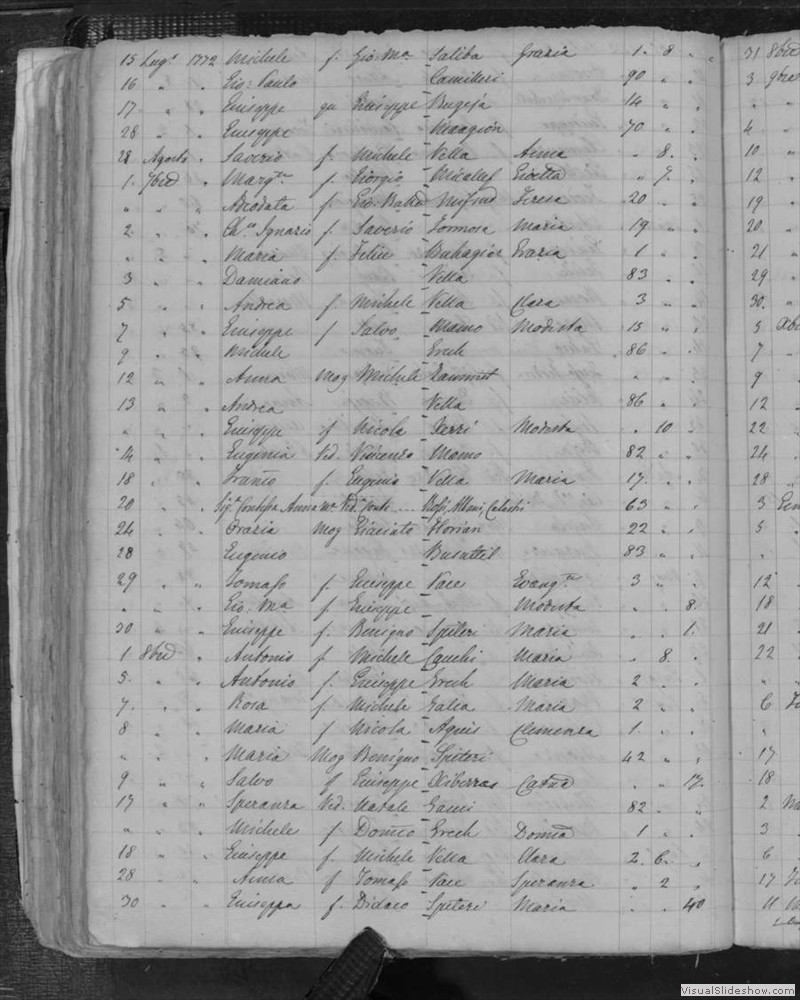 15 Lugº 1772 Michele f. Gio: Mª Saliba Grazia 1. 8 "
16 " " Gio: Paulo Camilleri 90 " "
17 " " Giuseppe qu Giuseppe Bugeja 14 " "
28 " " Giuseppe 70 " "
28 Agosto " Saverio f. Michele Vella Anna " 8. "
1. 7bre " Margta f. Giorgio Micallef " 7. "
" " " Adeodata f. Gio: Batta Mifsud Teresa 20 " "
2 " " Ignazio f. Saverio Formosa Maria 19 " "
" " " Maria f. Felice Buhagiar Grazia 1 " "
3 " " Damiano Vella 83 " "
5 " " Andrea f. Michele Vella Clara 3 " "
7 " " Giuseppe f. Salvo Mamo Modesta 15 " "
9 " " Michele Grech 86 " "
12 " " Anna Mog Michele Zammit " " "
13 " " Andrea Vella 86 " "
" " " Giuseppe f Nicola Modesta " 10 "
14 " " Eugenia Ved. Vincenzo Momo 82 " "
18 " " Franco f. Eugenio Vella Maria 17 " "
20 " " Sigª Contessa Anna Mª Ved. Conte ... 63 " "
24 " " Grazia Mog Giaciato Florian 22 " "
28 Eugenio Busuttil 83 " "
29 " " Tomaso f. Giuseppe Pace Evangta 3 " "
" " " Gio: Ma f Giuseppe Modesta " " 8.
30 " " Giuseppe f. Benigno Spiteri Maria " " 1.
1 8bre " Antonio f Michele Maria " 8. "
5. " " Antonio f. Giuseppe Grech Maria 2 " "
7. " " Rosa f Michele Galia Maria 2 " "
8 " " Maria f Nicola Agius Clemenza 1 " "
" " " Maria Mog Benigno Spiteri 42 " "
9 " " Salvo f Giuseppe Xiberras " " 17.
17 " " Speranza Ved. Natale Gauci 82 " "
" " " Michele f Domco Grech Domca 1 " "
18 " " Giuseppe f. Michele Vella Clara 2. 6. "
28 " " Anna f Tomaso Pace Speranza " 2 "
30 " " Giuseppa f. Didaco Spiteri Maria " " 40
31 8bre
3 9bre
"
4
10
12
19
20
21
29
30.
5
7
9
12
22
24
28
3
5
"
12
18
21
22
"
6
"
17
18
2
3
6
17
11
VisualSlideshow.com